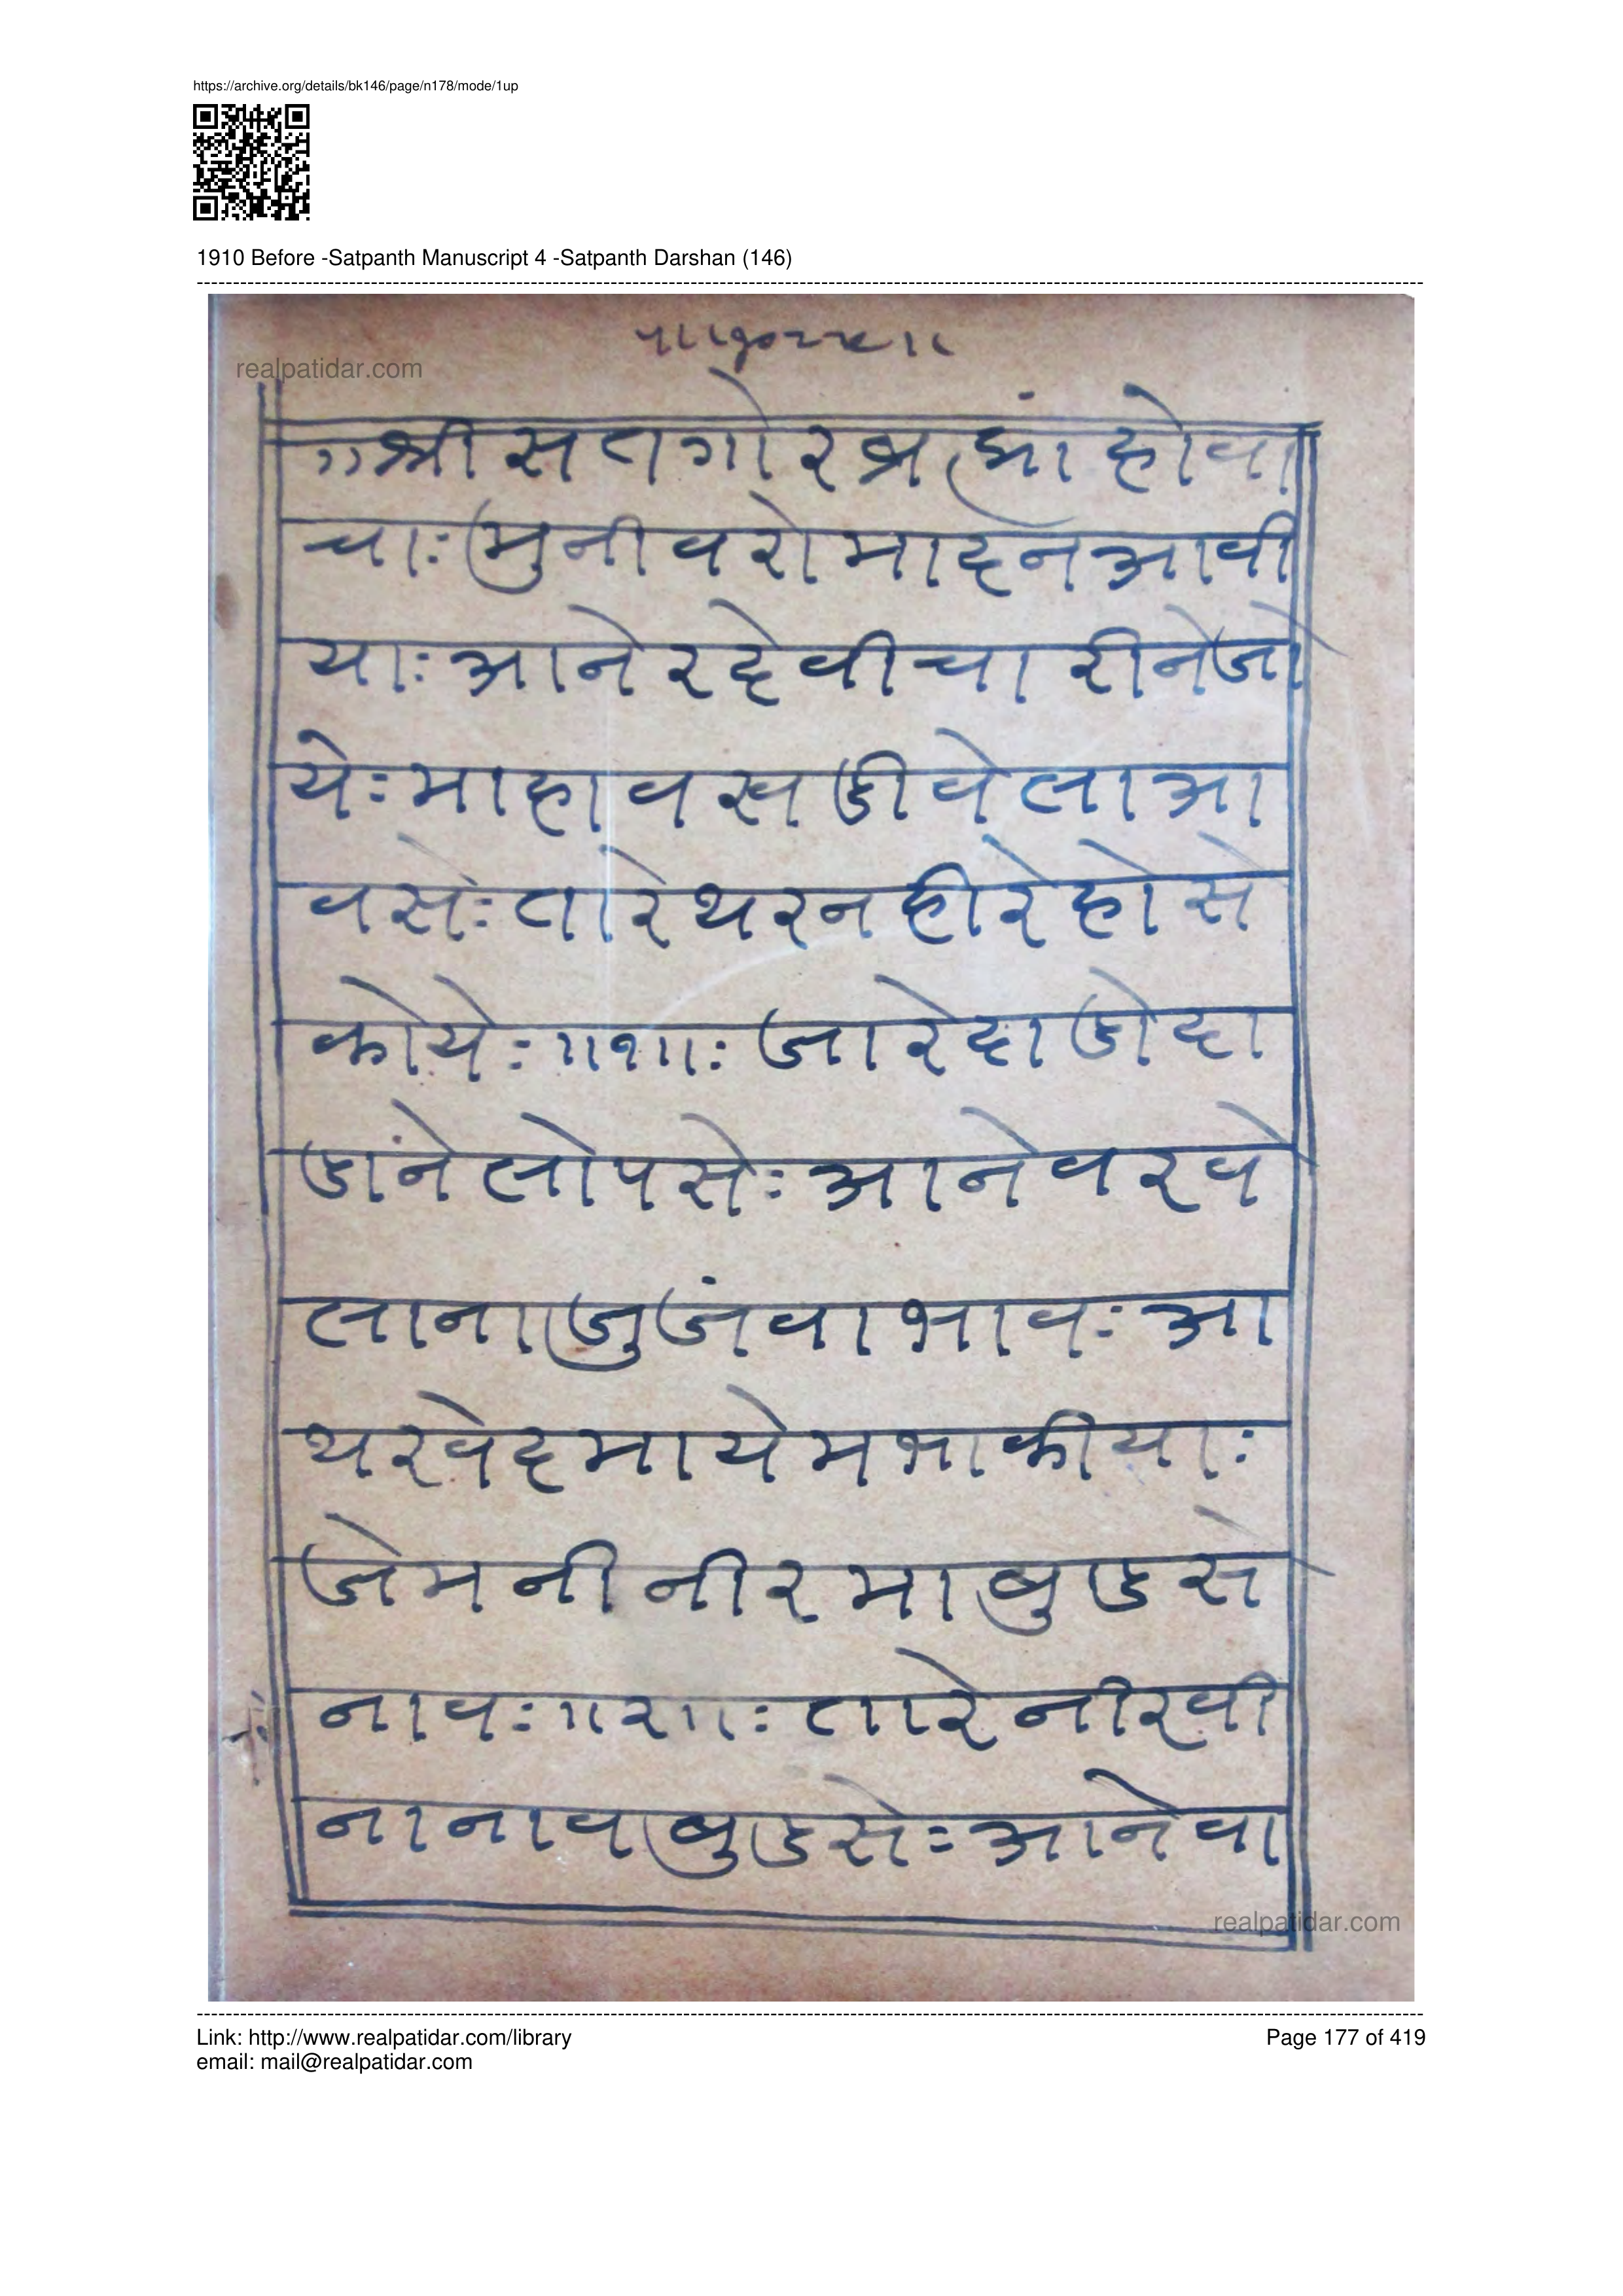 https://archive.org/details/bk146/page/n178/mode/1up
1910 Before -Satpanth Manuscript 4 -Satpanth Darshan (146)
realpatidar.com
॥श्रीसतगोरब्रह्मांहोवा
चाः मुनीवरोमादनआवी
याः आनेरदेवीचारीनेजो
येः माहावखडीवेलाआ
वसेः तारेथरनहीरेहोसे
कोयेः ॥१॥ः जारेदाडोदा
डांनेलोपसेः आनेवरवे
लानाजुजंवाभावः आ
थरवेदमायेमभाकीयाः
जेमनीनीरमाबुडसे
नावः ॥२॥ः तारेनीरवी
नानावबुडसेः आनेवा
realpatidar.com
Link: http://www.realpatidar.com/library
Page 177 of 419
email: mail@realpatidar.com